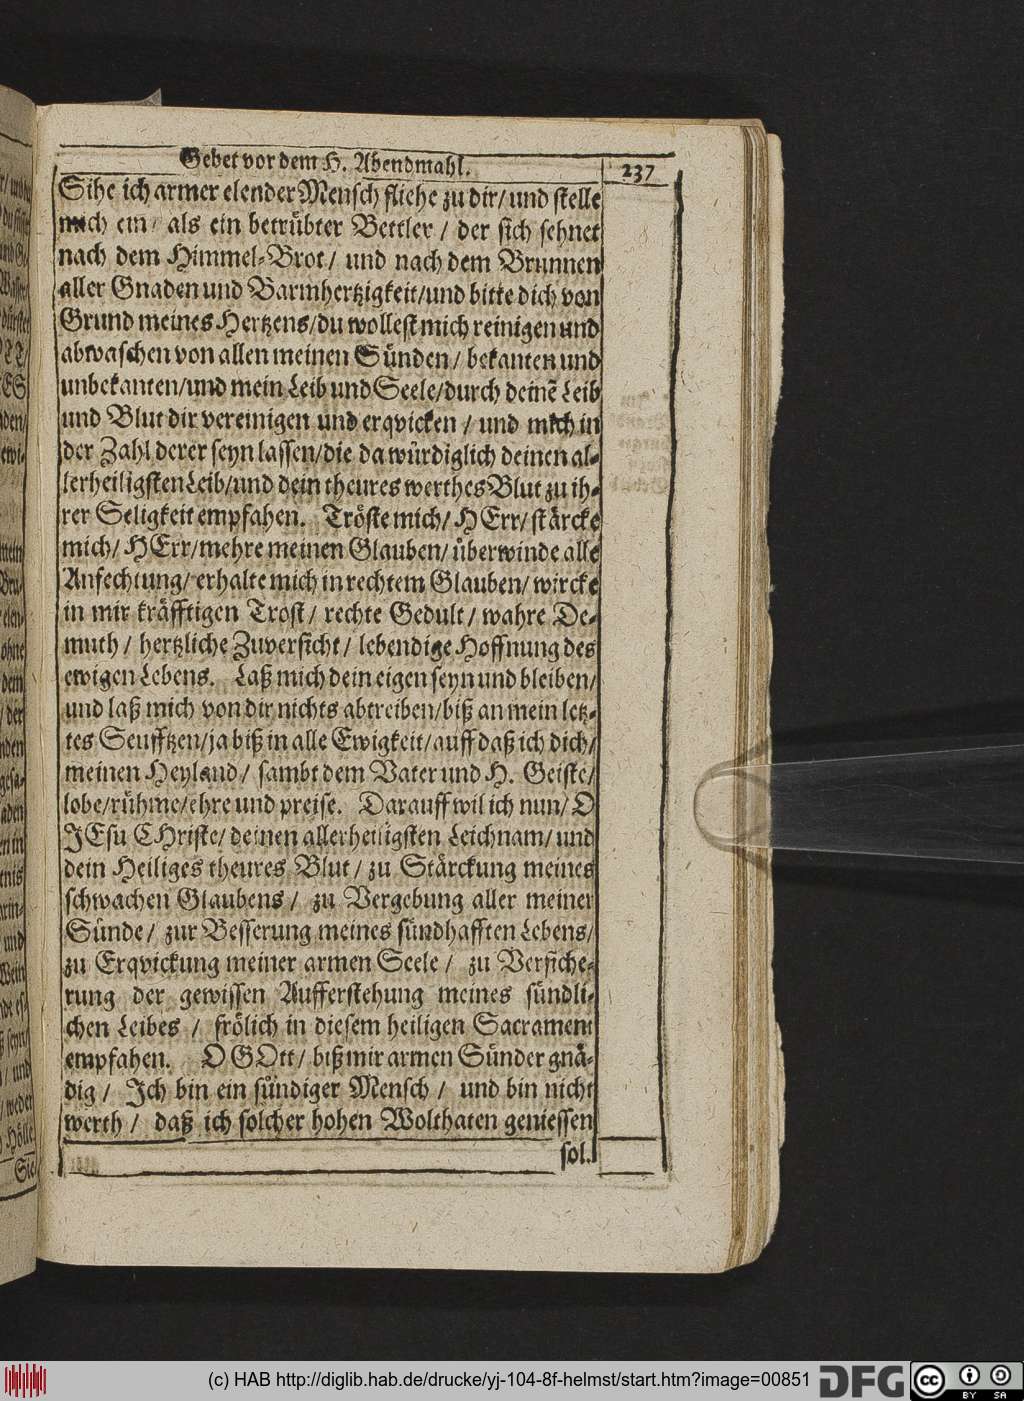 Gebet vor dem H. Abendmahl. 237
Sihe ich armer elender Mensch fliehe zu dir/ und stelle
mich ein/ als ein betrübter Bettler / der sich sehnet
nach dem Himmel-Brot/ und nach dem Brunnen
aller Gnaden und Barmhertzigkeit/und bitte dich von
Grund meines Hertzens/du wollest mich reinigen und
abwaschen von allen meinen Sünden/ bekanten und
unbekanten/und mein Leib und Seele/durch deinē Leib
und Blut dir vereinigen und erqvicken / und mich in
der Zahl derer seyn lassen/die da würdiglich deinen al-
lerheiligsten Leib/und dein theures werthes Blut zu ih-
rer Seligkeit empfahen. Tröste mich/ HErr/ stärcke
mich/ HErr/mehre meinen Glauben/ überwinde alle
Anfechtung/ erhalte mich in rechtem Glauben/ wircke
in mir kräfftigen Trost/ rechte Gedult/ wahre De-
muth/ hertzliche Zuversicht/ lebendige Hoffnung des
ewigen Lebens. Laß mich dein eigen seyn und bleiben/
und laß mich von dir nichts abtreiben/biß an mein letz-
tes Seufftzen/ja biß in alle Ewigkeit/auff daß ich dich/
meinen Heyland/ sambt dem Vater und H. Geiste/
lobe/rühme/ehre und preise. Darauff wil ich nun/ O
JEsu CHriste/ deinen allerheiligsten Leichnam/ und
dein Heiliges theures Blut/ zu Stärckung meines
schwachen Glaubens / zu Vergebung aller meiner
Sünde/ zur Besserung meines sündhafften Lebens/
zu Erqvickung meiner armen Seele / zu Versiche-
rung der gewissen Aufferstehung meines sündli-
chen Leibes / frölich in diesem heiligen Sacrament
empfahen. O GOtt/ biß mir armen Sünder gnä-
dig / Ich bin ein sündiger Mensch / und bin nicht
werth / daß ich solcher hohen Wolthaten geniessen
sol.
(c) HAB http://diglib.hab.de/drucke/yj-104-8f-helmst/start.htm?image=00851
DFG
cc BY SA